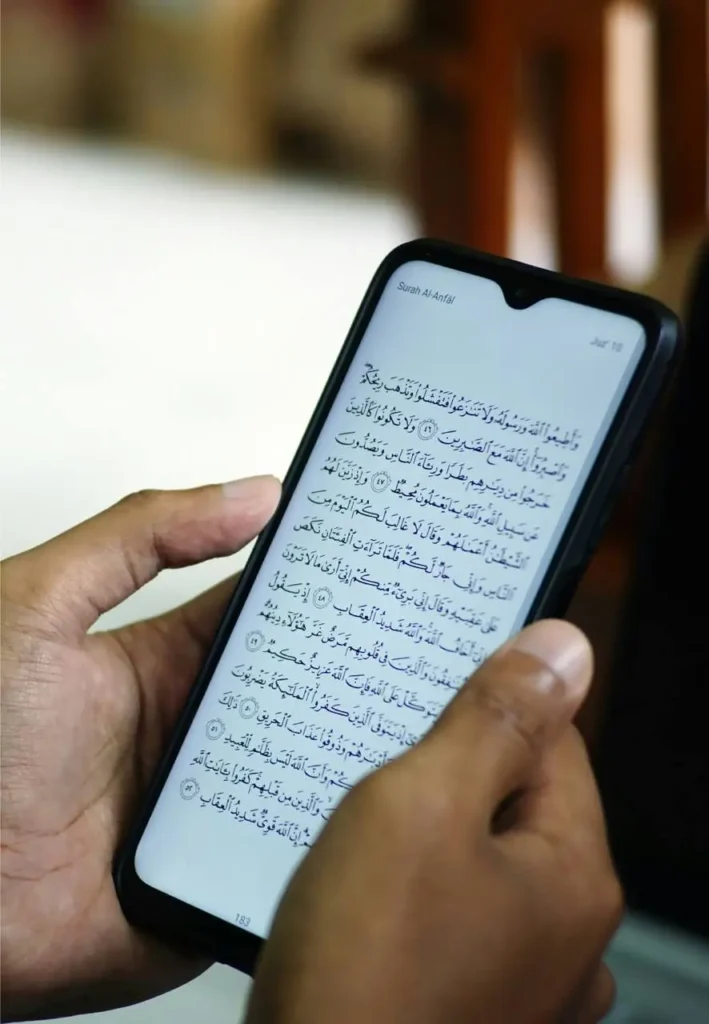 Surah Al-Anfāl
Juz' 10
وَأَطِيعُوا۟ ٱللَّهَ وَرَسُولَهُۥ وَلَا تَنَـٰزَعُوا۟ فَتَفْشَلُوا۟ وَتَذْهَبَ رِيحُكُمْ ۖ
وَٱصْبِرُوٓا۟ ۚ إِنَّ ٱللَّهَ مَعَ ٱلصَّـٰبِرِينَ ٤٦ وَلَا تَكُونُوا۟ كَٱلَّذِينَ
خَرَجُوا۟ مِن دِيَـٰرِهِم بَطَرًا وَرِئَآءَ ٱلنَّاسِ وَيَصُدُّونَ
عَن سَبِيلِ ٱللَّهِ ۚ وَٱللَّهُ بِمَا يَعْمَلُونَ مُحِيطٌ ٤٧ وَإِذْ زَيَّنَ لَهُمُ
ٱلشَّيْطَـٰنُ أَعْمَـٰلَهُمْ وَقَالَ لَا غَالِبَ لَكُمُ ٱلْيَوْمَ مِنَ
ٱلنَّاسِ وَإِنِّى جَارٌ لَّكُمْ ۖ فَلَمَّا تَرَآءَتِ ٱلْفِئَتَانِ نَكَصَ
عَلَىٰ عَقِبَيْهِ وَقَالَ إِنِّى بَرِىٓءٌ مِّنكُمْ إِنِّىٓ أَرَىٰ مَا لَا تَرَوْنَ
إِنِّىٓ أَخَافُ ٱللَّهَ ۚ وَٱللَّهُ شَدِيدُ ٱلْعِقَابِ ٤٨ إِذْ يَقُولُ
وَٱلَّذِينَ فِى قُلُوبِهِم مَّرَضٌ غَرَّ هَـٰٓؤُلَآءِ دِينُهُمْ
عَلَى ٱللَّهِ فَإِنَّ ٱللَّهَ عَزِيزٌ حَكِيمٌ ٤٩
إِذْ يَتَوَفَّى ٱلَّذِينَ كَفَرُوا۟ ۙ ٱلْمَلَـٰٓئِكَةُ يَضْرِبُونَ
وَأَدْبَـٰرَهُمْ وَذُوقُوا۟ عَذَابَ ٱلْحَرِيقِ ٥٠ ذَٰلِكَ
وَأَنَّ ٱللَّهَ لَيْسَ بِظَلَّـٰمٍ لِّلْعَبِيدِ ٥١
وَٱلَّذِينَ مِن قَبْلِهِمْ ۚ كَفَرُوا۟ بِـَٔايَـٰتِ ٱللَّهِ
إِنَّ ٱللَّهَ قَوِىٌّ شَدِيدُ ٱلْعِقَابِ ٥٢
183